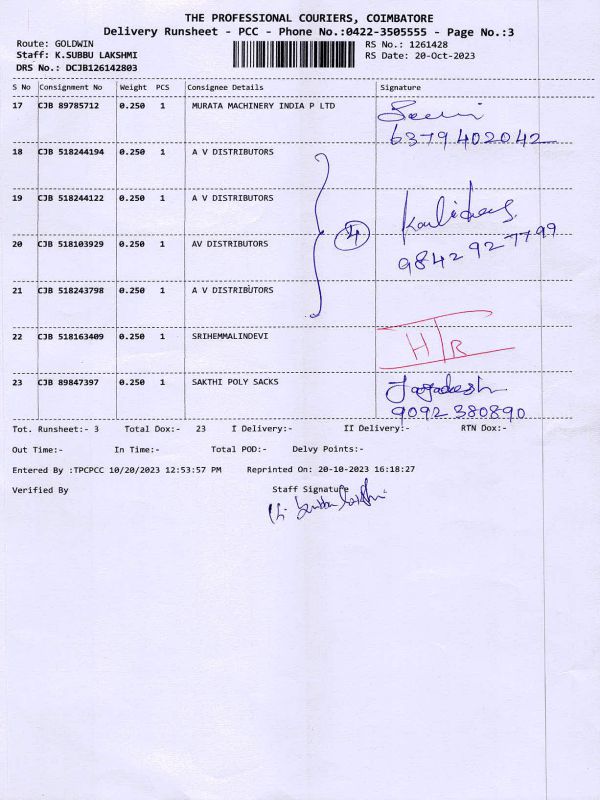 THE PROFESSIONAL COURIERS, COIMBATORE
Delivery Runsheet - PCC - Phone No.:0422-3505555 - Page No.:3
Route: GOLDWIN RS No.: 1261428
Staff: K.SUBBU LAKSHMI RS Date: 20-Oct-2023
DRS No.: DCJB126142803
S No Consignment No Weight PCS Consignee Details Signature
17 CJB 89785712 0.250 1 MURATA MACHINERY INDIA P LTD
6379402042
18 CJB 518244194 0.250 1 A V DISTRIBUTORS
19 CJB 518244122 0.250 1 A V DISTRIBUTORS
4
20 CJB 518103929 0.250 1 AV DISTRIBUTORS
9842927799
21 CJB 518243798 0.250 1 A V DISTRIBUTORS
22 CJB 518163409 0.250 1 SRIHEMMALINDEVI
H/R
23 CJB 89847397 0.250 1 SAKTHI POLY SACKS Jagadesh
9092380890
Tot. Runsheet:- 3 Total Dox:- 23 I Delivery:- II Delivery:- RTN Dox:-
Out Time:- In Time:- Total POD:- Delvy Points:-
Entered By :TPCPCC 10/20/2023 12:53:57 PM Reprinted On: 20-10-2023 16:18:27
Verified By Staff Signature